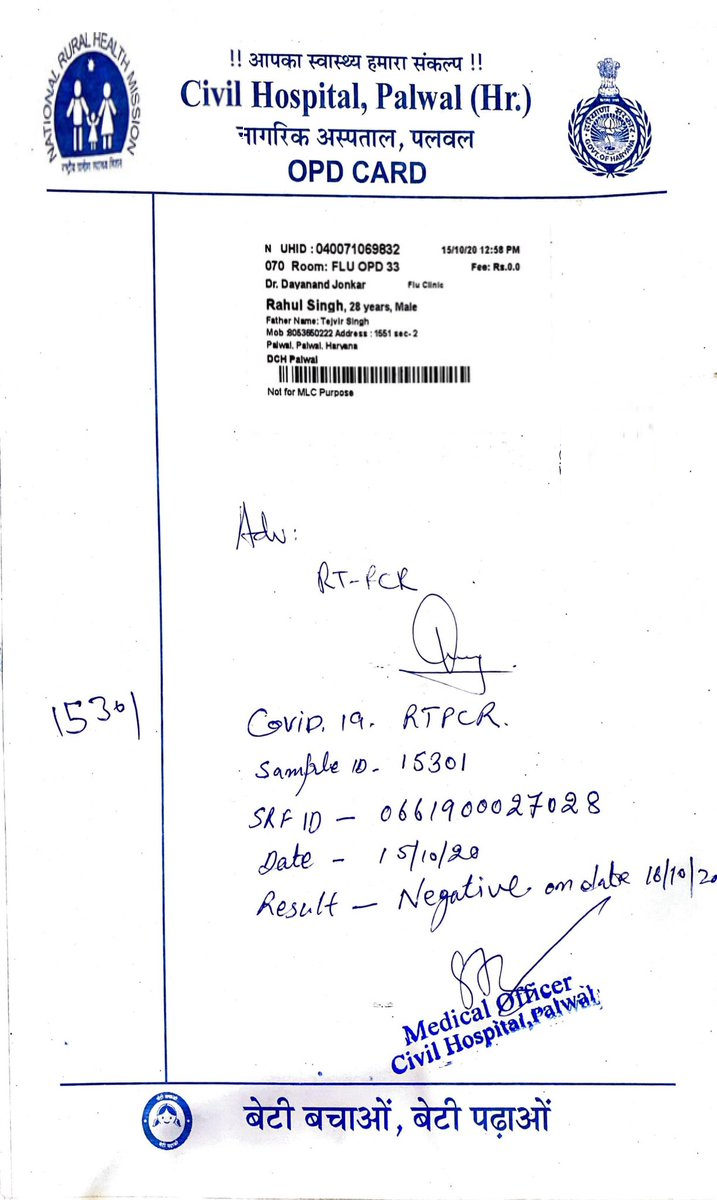 NATIONAL RURAL HEALTH MISSION
राष्ट्रीय ग्रामीण स्वास्थ्य मिशन
!! आपका स्वास्थ्य हमारा संकल्प !!
Civil Hospital, Palwal (Hr.)
नागरिक अस्पताल, पलवल
OPD CARD
हरियाणा सरकार
GOVT. OF HARYANA
N UHID : 040071069832 15/10/20 12:58 PM
070 Room: FLU OPD 33 Fee: Rs.0.0
Dr. Dayanand Jonkar Flu Clinic
Rahul Singh, 28 years, Male
Father Name: Tejvir Singh
Mob :8053650222 Address : 1551 sec-2
Palwal, Palwal, Haryana
DCH Palwal
Not for MLC Purpose
Adv:
RT-PCR
15301
Covid. 19. RTPCR.
Sample ID - 15301
SRF ID - 0661900027028
Date - 15/10/20
Result - Negative on date 18/10/20
Medical Officer
Civil Hospital,Palwal
बेटी बचाओ
बेटी पढ़ाओ
बेटी बचाओं, बेटी पढ़ाओं